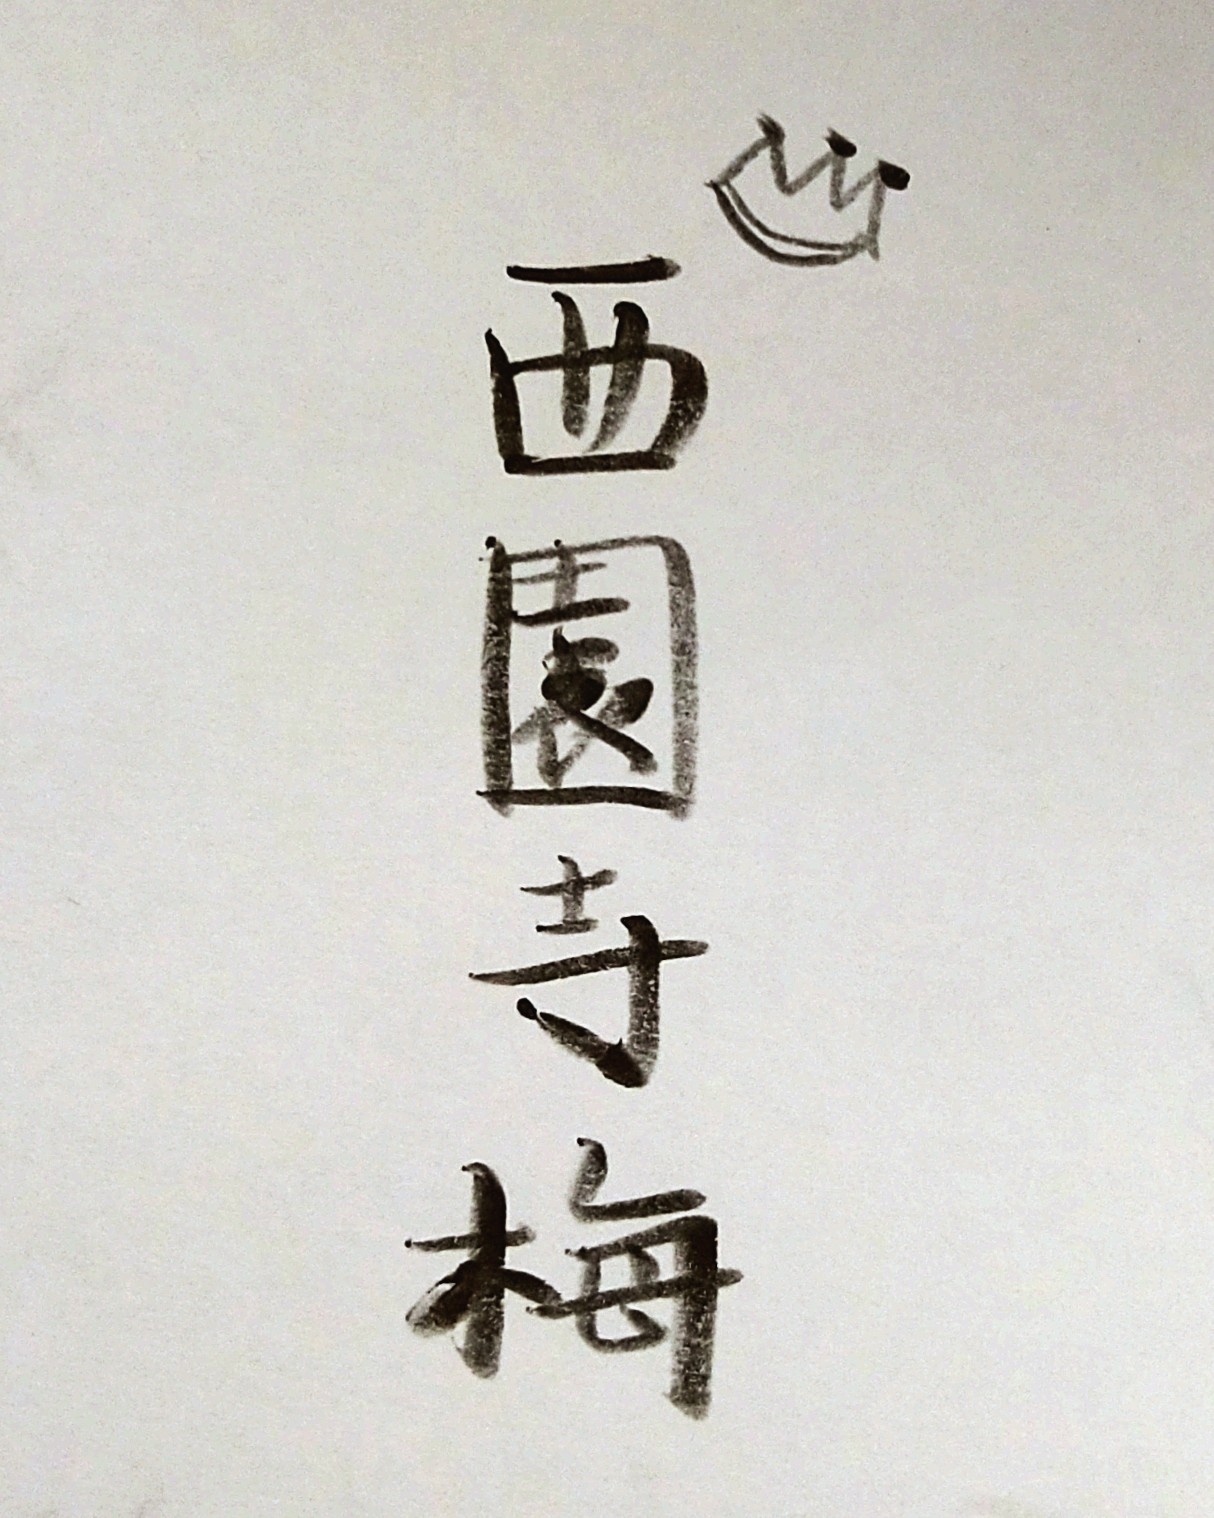 西園寺梅